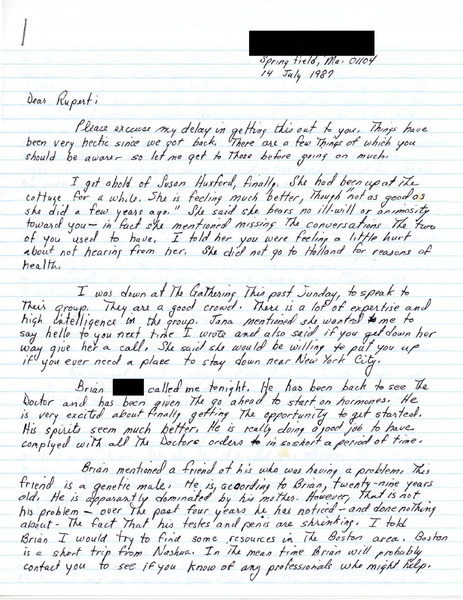 Springfield, Ma. 01104
14 July 1987
Dear Rupert:
Please excuse my delay in getting this out to you. Things have
been very hectic since we got back. There are a few things of which you
should be awarer so let me get to those before going on much.
I got ahold of Susan Huxford, finally. She had been up at the
cottage for a while. She is feeling much better, though "not as good as
she did a few years ago." She said she bears no ill-will or animosity
toward you - in fact she mentioned missing the conversations the two
of you used to have. I told her you were feeling a little hurt
about not hearing from her. She did not go to Holland for reasons of
health.
I was down at The Gathering This past Sunday, to speak to
Their group. They are a good crowd. There is a lot of expertise and
high intelligence in the group. Jana mentioned she wanted to me to
say hello to you next time I wrote and also said if you get down her
way give her a call. She said she would be willing to put you up
if you ever need a place to stay down near New York City.
Brian called me tonight. He has been back to see The
Doctor and has been given The go ahead to start on hormones. He
is very excited about finally getting The opportunity to get started.
His spirits seem much better. He is really doing a good job to have
complyed with all The Doctors orders in so short a period of time.
Brian mentioned a friend of his who was having a problem. This
friend is a genetic male. He is, according to Brian, twenty-nine years
old. He is apparantly dominated by his mother. However, That is not
his problem - over The past four years he has noticed - and done nothing
about - The fact That his testes and penis are shrinking. I told
Brian I would try to find some resources in The Boston area. Boston
is a short trip from Nashua. In the mean time Brian will probably
contact you to see if you know of any professionals who might help.